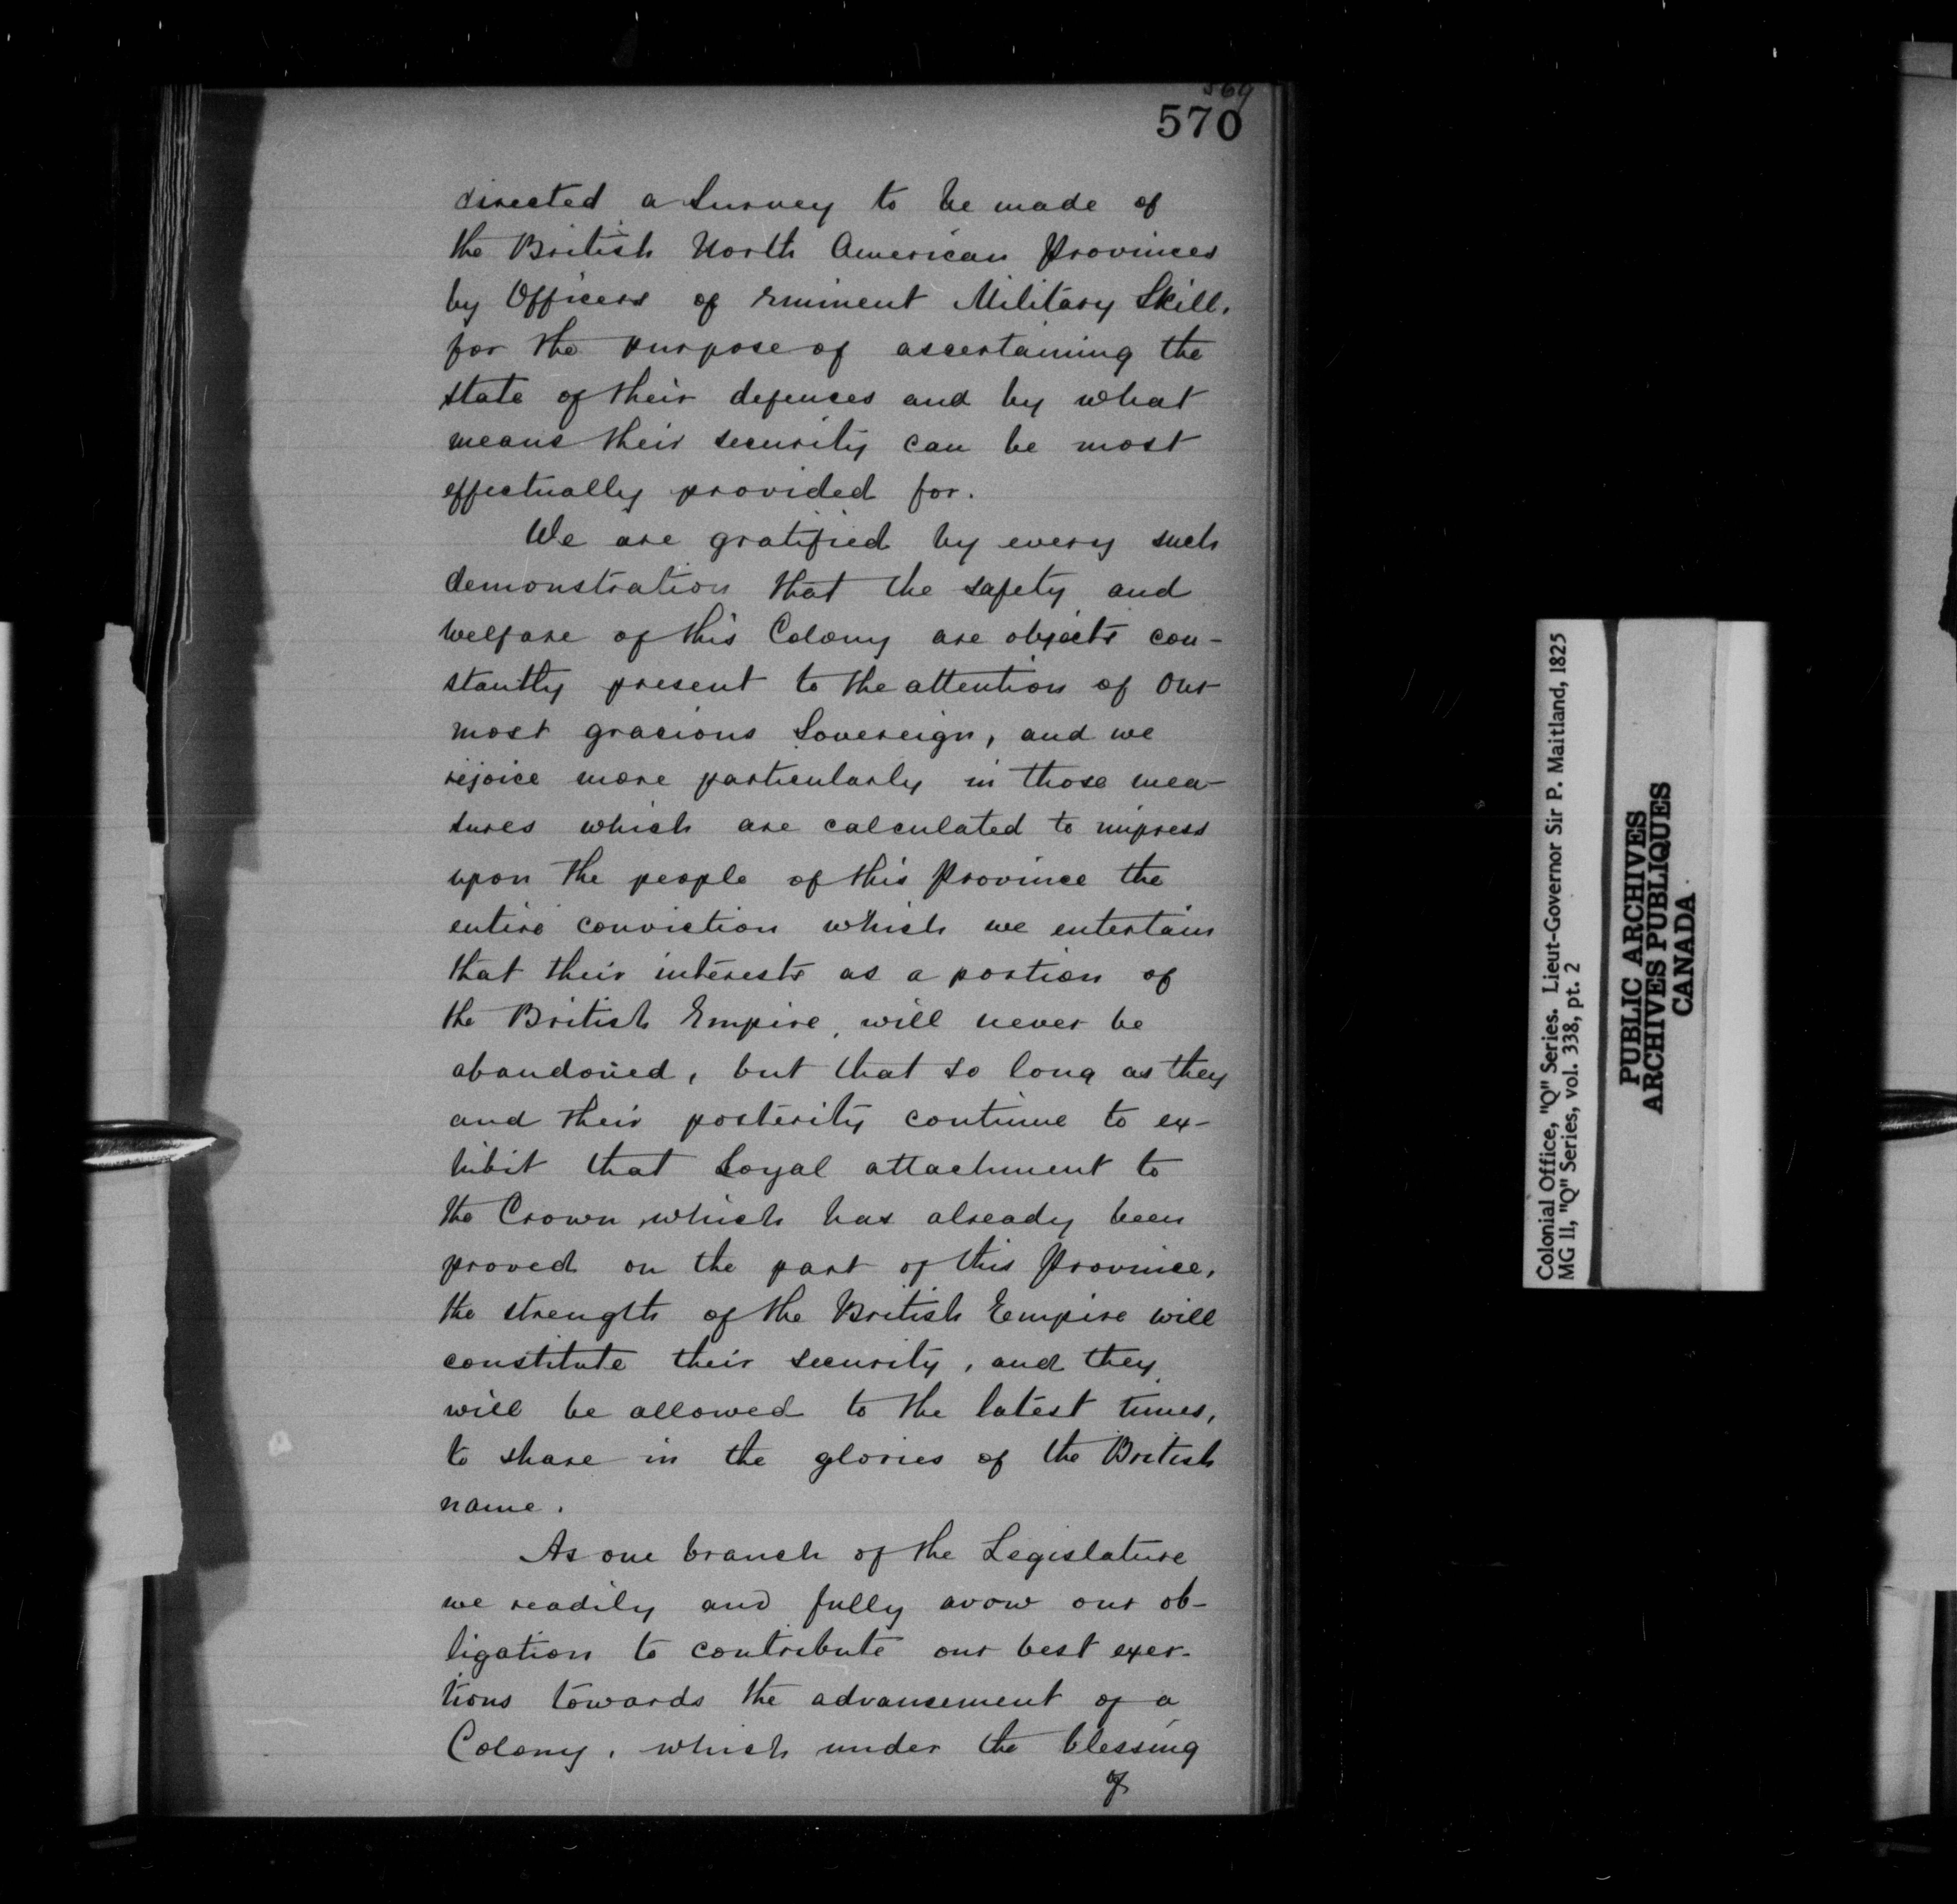 569
570
directed a Survey to be made of
the British North American Provinces
by Officers of Eminent Military Skill,
for the purpose of ascertaining the
state of their defences and by what
means their security can be most
effectually provided for.
We are gratified by every such
demonstration that the safety and
welfare of this Colony are objects con-
stantly present to the attention of Our
most gracious Sovereign, and we
rejoice more particularly in those mea-
sures which are calculated to impress
upon the people of this Province the
entire conviction which we entertain
that their interests as a portion of
the British Empire, will never be
abandoned, but that so long as they
and their posterity continue to ex-
hibit that Loyal attachment to
the Crown, which has already been
proved on the part of this Province,
the strength of the British Empire will
constitute their security, and they
will be allowed to the latest times,
to share in the glories of the British
name.
As one branch of the Legislature
we readily and fully avow our ob-
ligation to contribute our best exer-
tions towards the advancement of a
Colony, which under the blessing
of
Colonial Office, "Q" Series. Lieut-Governor Sir P. Maitland, 1825
MG 11, "Q" Series, vol. 338, pt. 2
PUBLIC ARCHIVES
ARCHIVES PUBLIQUES
CANADA